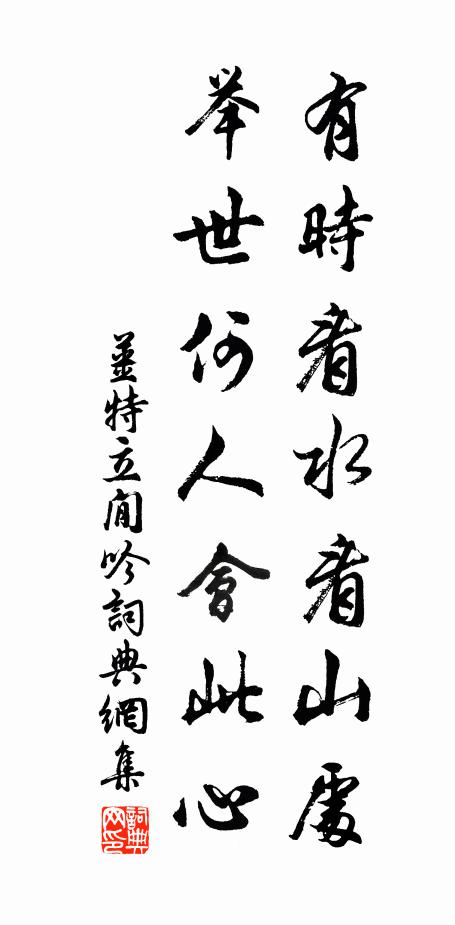 有時看水看山處
举世何人會此心
姜特立閒吟詞典網集
詞典網印